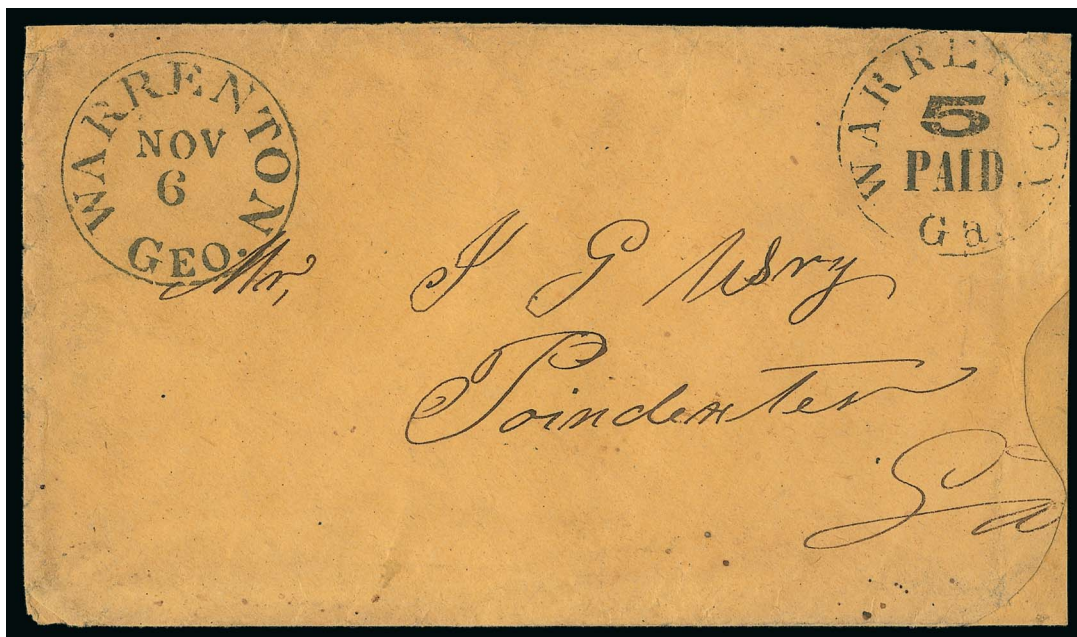 WARRENTON
NOV
6
GEO.
WARRENTON
5
PAID
Ga.
Mr, J G Usry
Poindexter
Ga